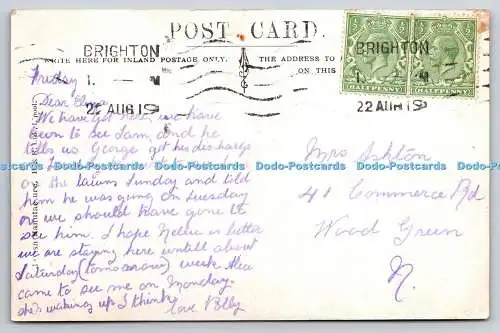 POST CARD.
WRITE HERE FOR INLAND POSTAGE ONLY.
THE ADDRESS TO
ON THIS
BRIGHTON
22 AUG 19
BRIGHTON
22 AUG 19
HALFPENNY
HALFPENNY
Friday
Dear
We have got here, we have
been to see Sam, and he
tells us George got his discharge
on the lawns Sunday and told
him he was going on Tuesday
or we should have gone to
see him. I hope Nellie is better
we are staying here untill about
Saturday (tomorrow) week
came to see me on Monday.
she's waking up I think
love
Mrs Ashton
41 Commerce Rd
Wood Green
N.
Dodo-Postcards Dodo-Postcards Dodo-Postcards Dodo-Postcards Dodo-Postcards